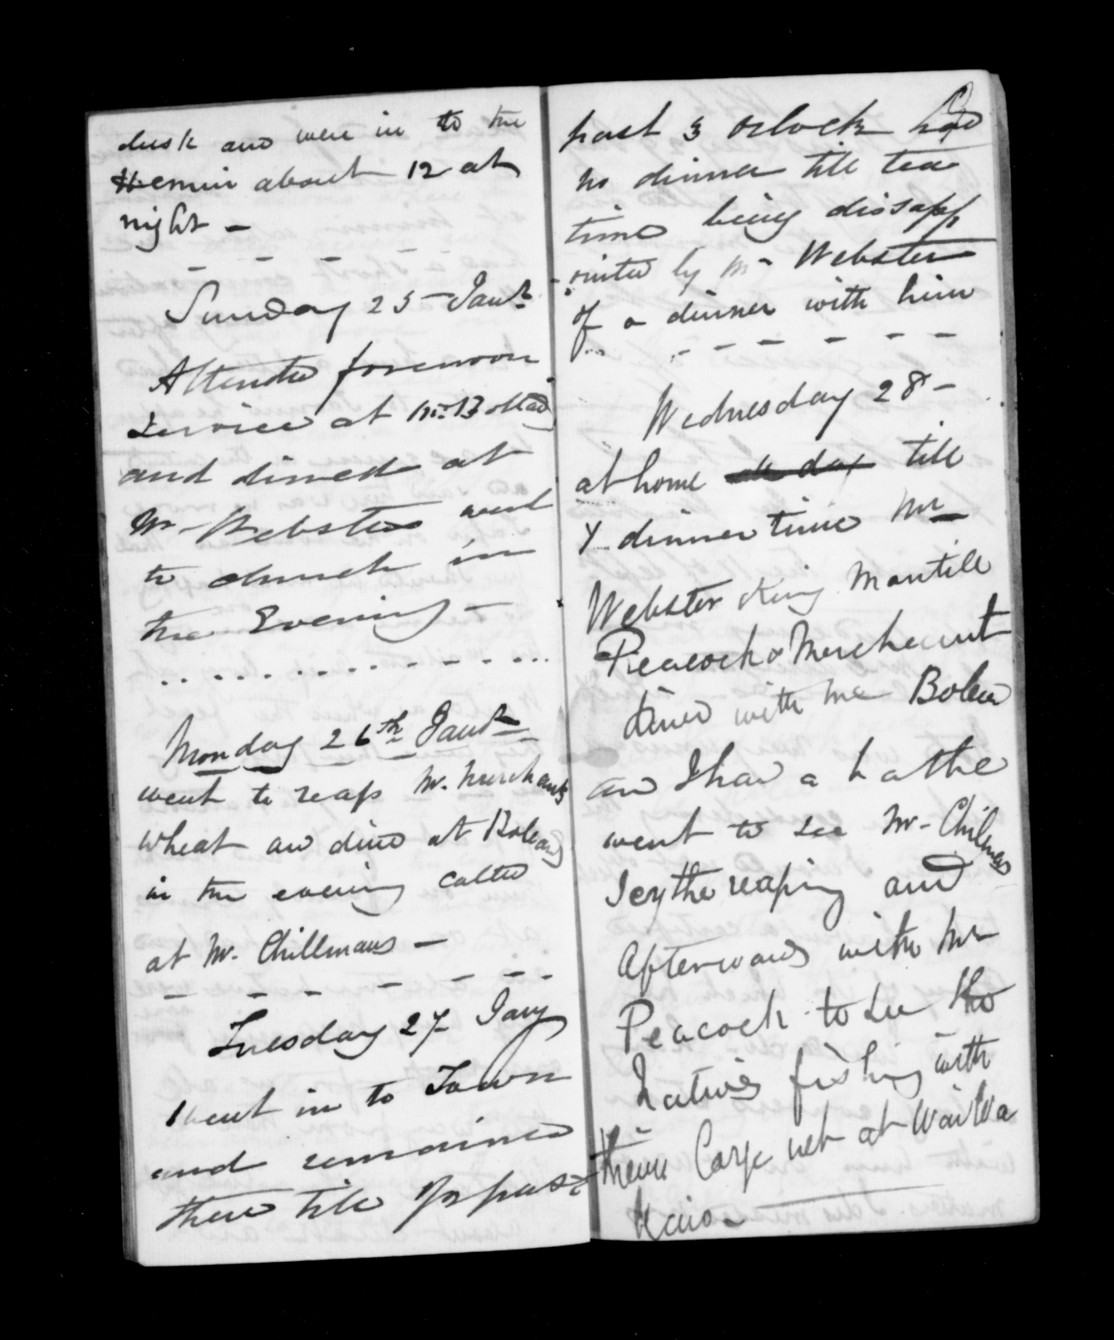 dusk and were in to the
about 12 at
night -
Sunday 25 Jany
Attended forenoon
Service at Mr
and dined at
Mr Websters and
to church in
the Evening -
Monday 26th Jany
went to reap Mr. Merchants
wheat and dined at Bolands
in the evening called
at Mr. Chillmans -
Tuesday 27 Jany
Went in to Town
and remained
there till past
past 3 oclock had
no dinner till tea
time being dissapp
ointed by Mr Webster
of a dinner with him
Wednesday 28 -
at home till
dinner time Mr
Webster King Mantell
Peacock & Merchant
dined with me
and I had a bathe
went to see Mr Chilmans
Scythe reaping and
afterwards with Mr
Peacock to see the
Natives fishing with
their large net at